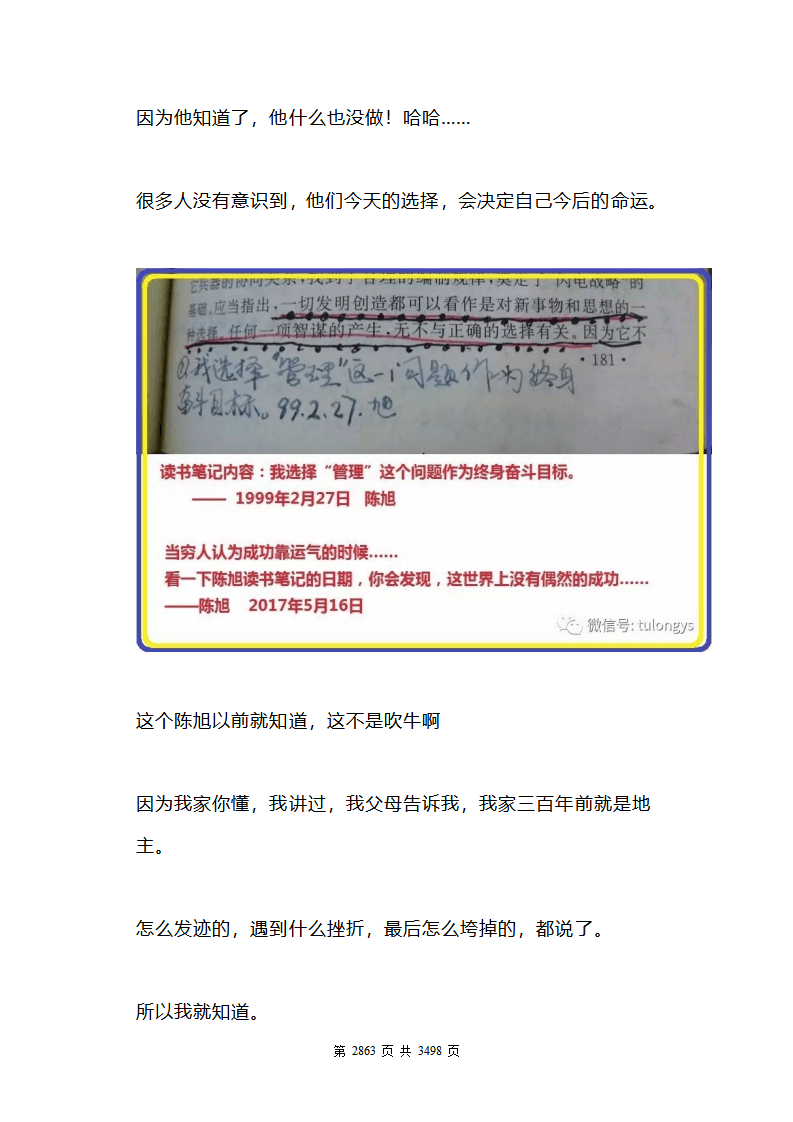 因为他知道了，他什么也没做！哈哈……
很多人没有意识到，他们今天的选择，会决定自己今后的命运。
它兵器的协同关系，找到了合理的编制规律，奠定了“闪电战略”的
基础。应当指出，一切发明创造都可以看作是对新事物和思想的一
种选择。任何一项智谋的产生，无不与正确的选择有关。因为它不
·181·
①我选择“管理”这一个问题作为终身
奋斗目标。99.2.27.旭
读书笔记内容：我选择“管理”这个问题作为终身奋斗目标。
—— 1999年2月27日 陈旭
当穷人认为成功靠运气的时候……
看一下陈旭读书笔记的日期，你会发现，这世界上没有偶然的成功……
——陈旭 2017年5月16日
微信号: tulongys
这个陈旭以前就知道，这不是吹牛啊
因为我家你懂，我讲过，我父母告诉我，我家三百年前就是地
主。
怎么发迹的，遇到什么挫折，最后怎么垮掉的，都说了。
所以我就知道。
第 2863 页 共 3498 页